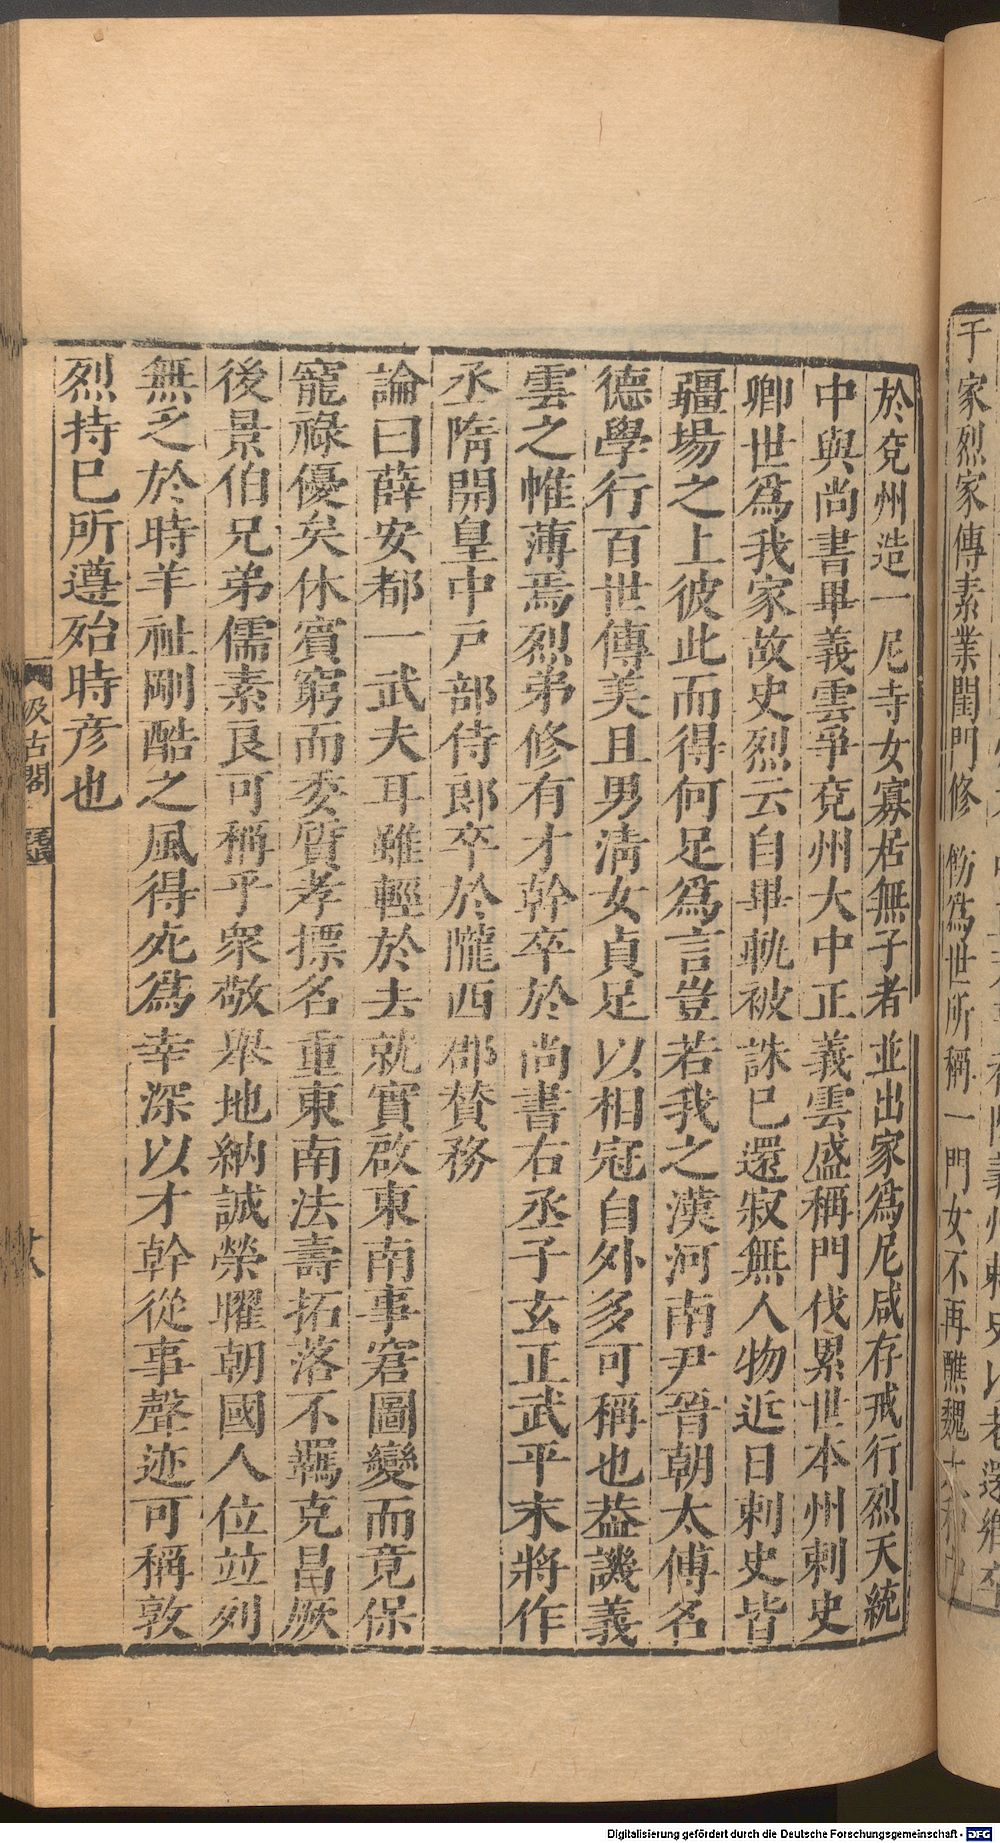 于家烈家傳素業閨門修飭爲世所稱一門女不再醮魏
於兗州造一尼寺女寡居無子者並出家爲尼咸存戒行烈天統
中與尚書畢義雲爭兗州大中正義雲盛稱門伐累世本州刺史
卿世爲我家故史烈云自畢軌被誅已還寂無人物近日刺史皆
疆場之上彼此而得何足爲言豈若我之漢河南尹晉朝太傅名
德學行百世傳美且男清女貞足以相冠自外多可稱也葢譏義
雲之帷薄焉烈弟修有才幹卒於尚書右丞子玄正武平末將作
丞隋開皇中戸部侍郎卒於隴西郡賛務
論曰薛安都一武夫耳雖輕於去就實啟東南事窘圖變而竟保
寵祿優矣休賓窮而委質孝摽名重東南法壽拓落不羈克昌厥
後景伯兄弟儒素良可稱乎衆敬舉地納誠榮曜朝國人位竝列
無乏於時羊祉剛酷之風得死爲幸深以才幹從事聲迹可稱敦
烈持已所遵殆時彦也
汲古閣